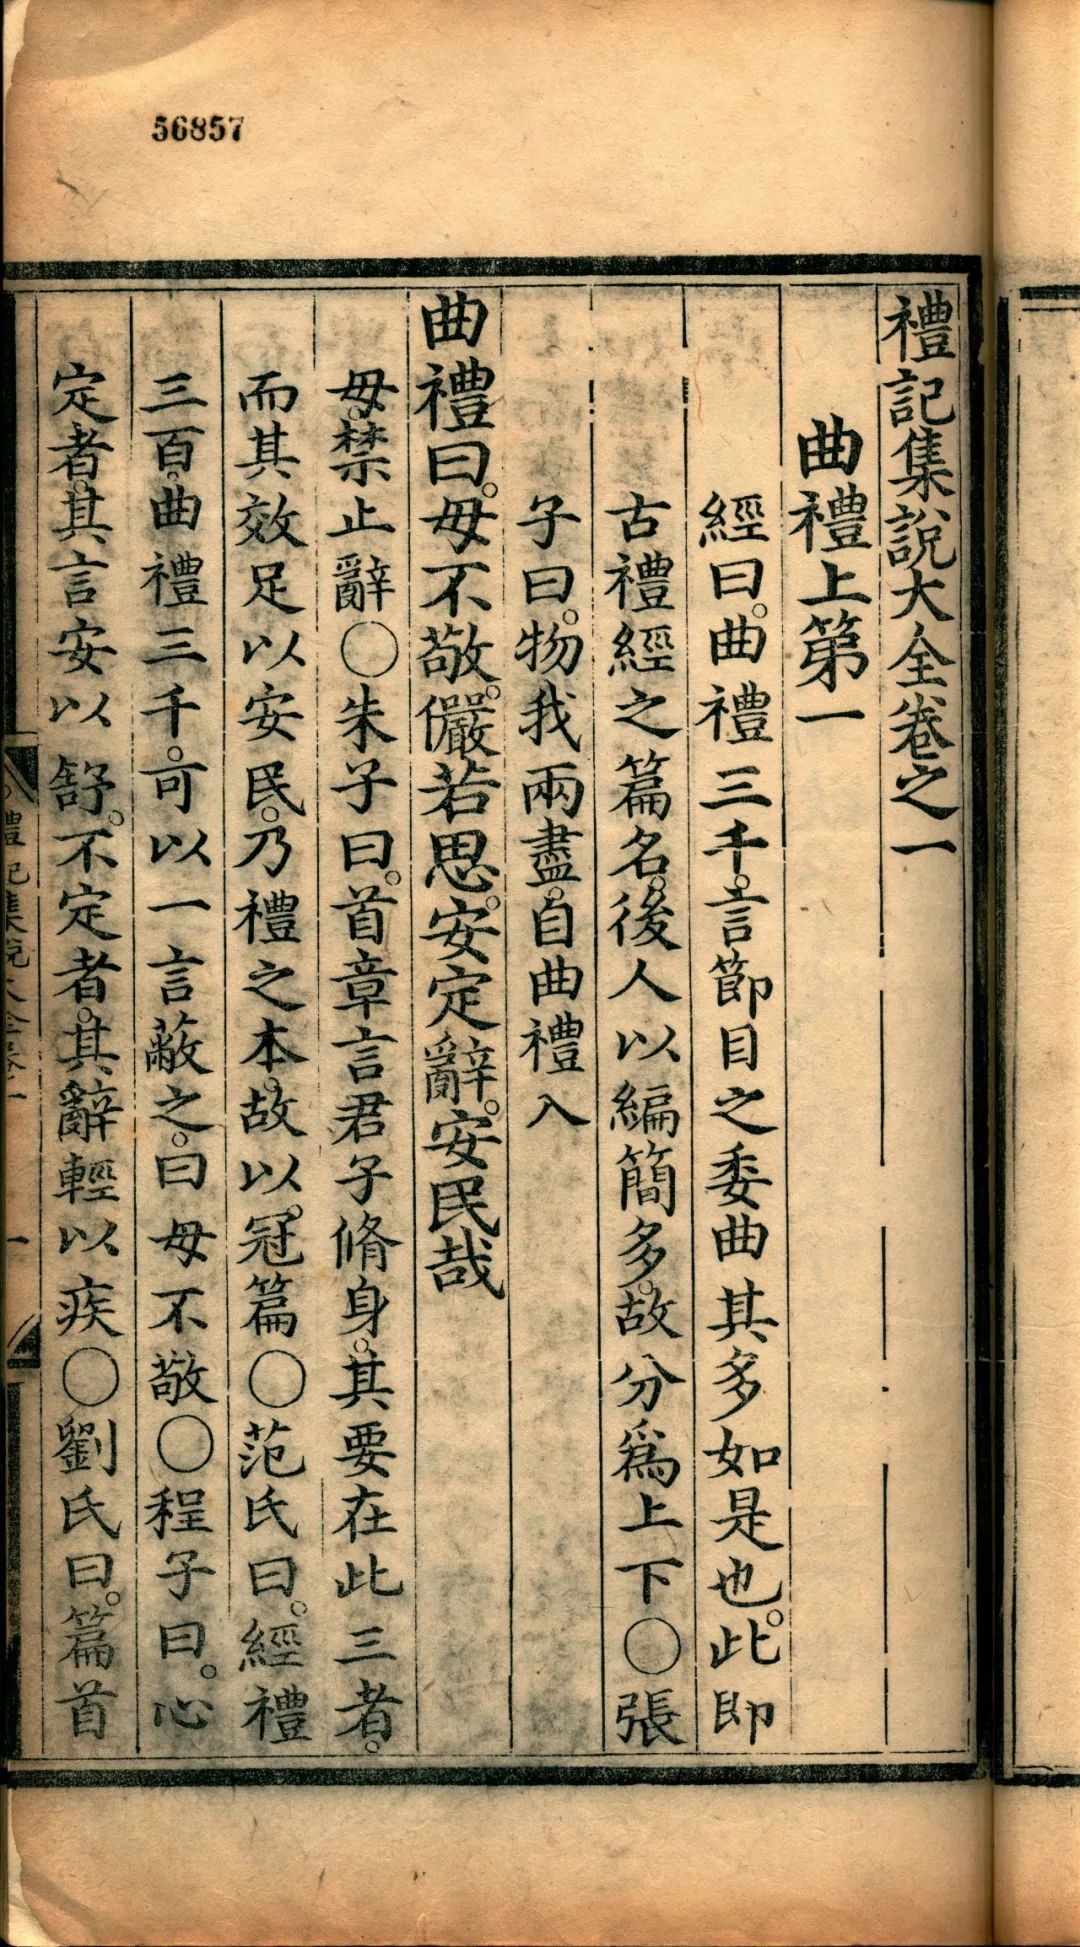 56857
禮記集說大全卷之一
曲禮上第一
經曰。曲禮三千。言節目之委曲其多如是也。此即
古禮經之篇名。後人以編簡多。故分爲上下〇張
子曰。物我兩盡。自曲禮入
曲禮曰。毋不敬。儼若思。安定辭。安民哉
毋。禁止辭〇朱子曰。首章言君子脩身。其要在此三者。
而其效足以安民。乃禮之本。故以冠篇〇范氏曰。經禮
三百。曲禮三千。可以一言蔽之。曰毋不敬〇程子曰。心
定者。其言安以舒。不定者。其辭輕以疾〇劉氏曰。篇首
禮記集說大全卷一
一